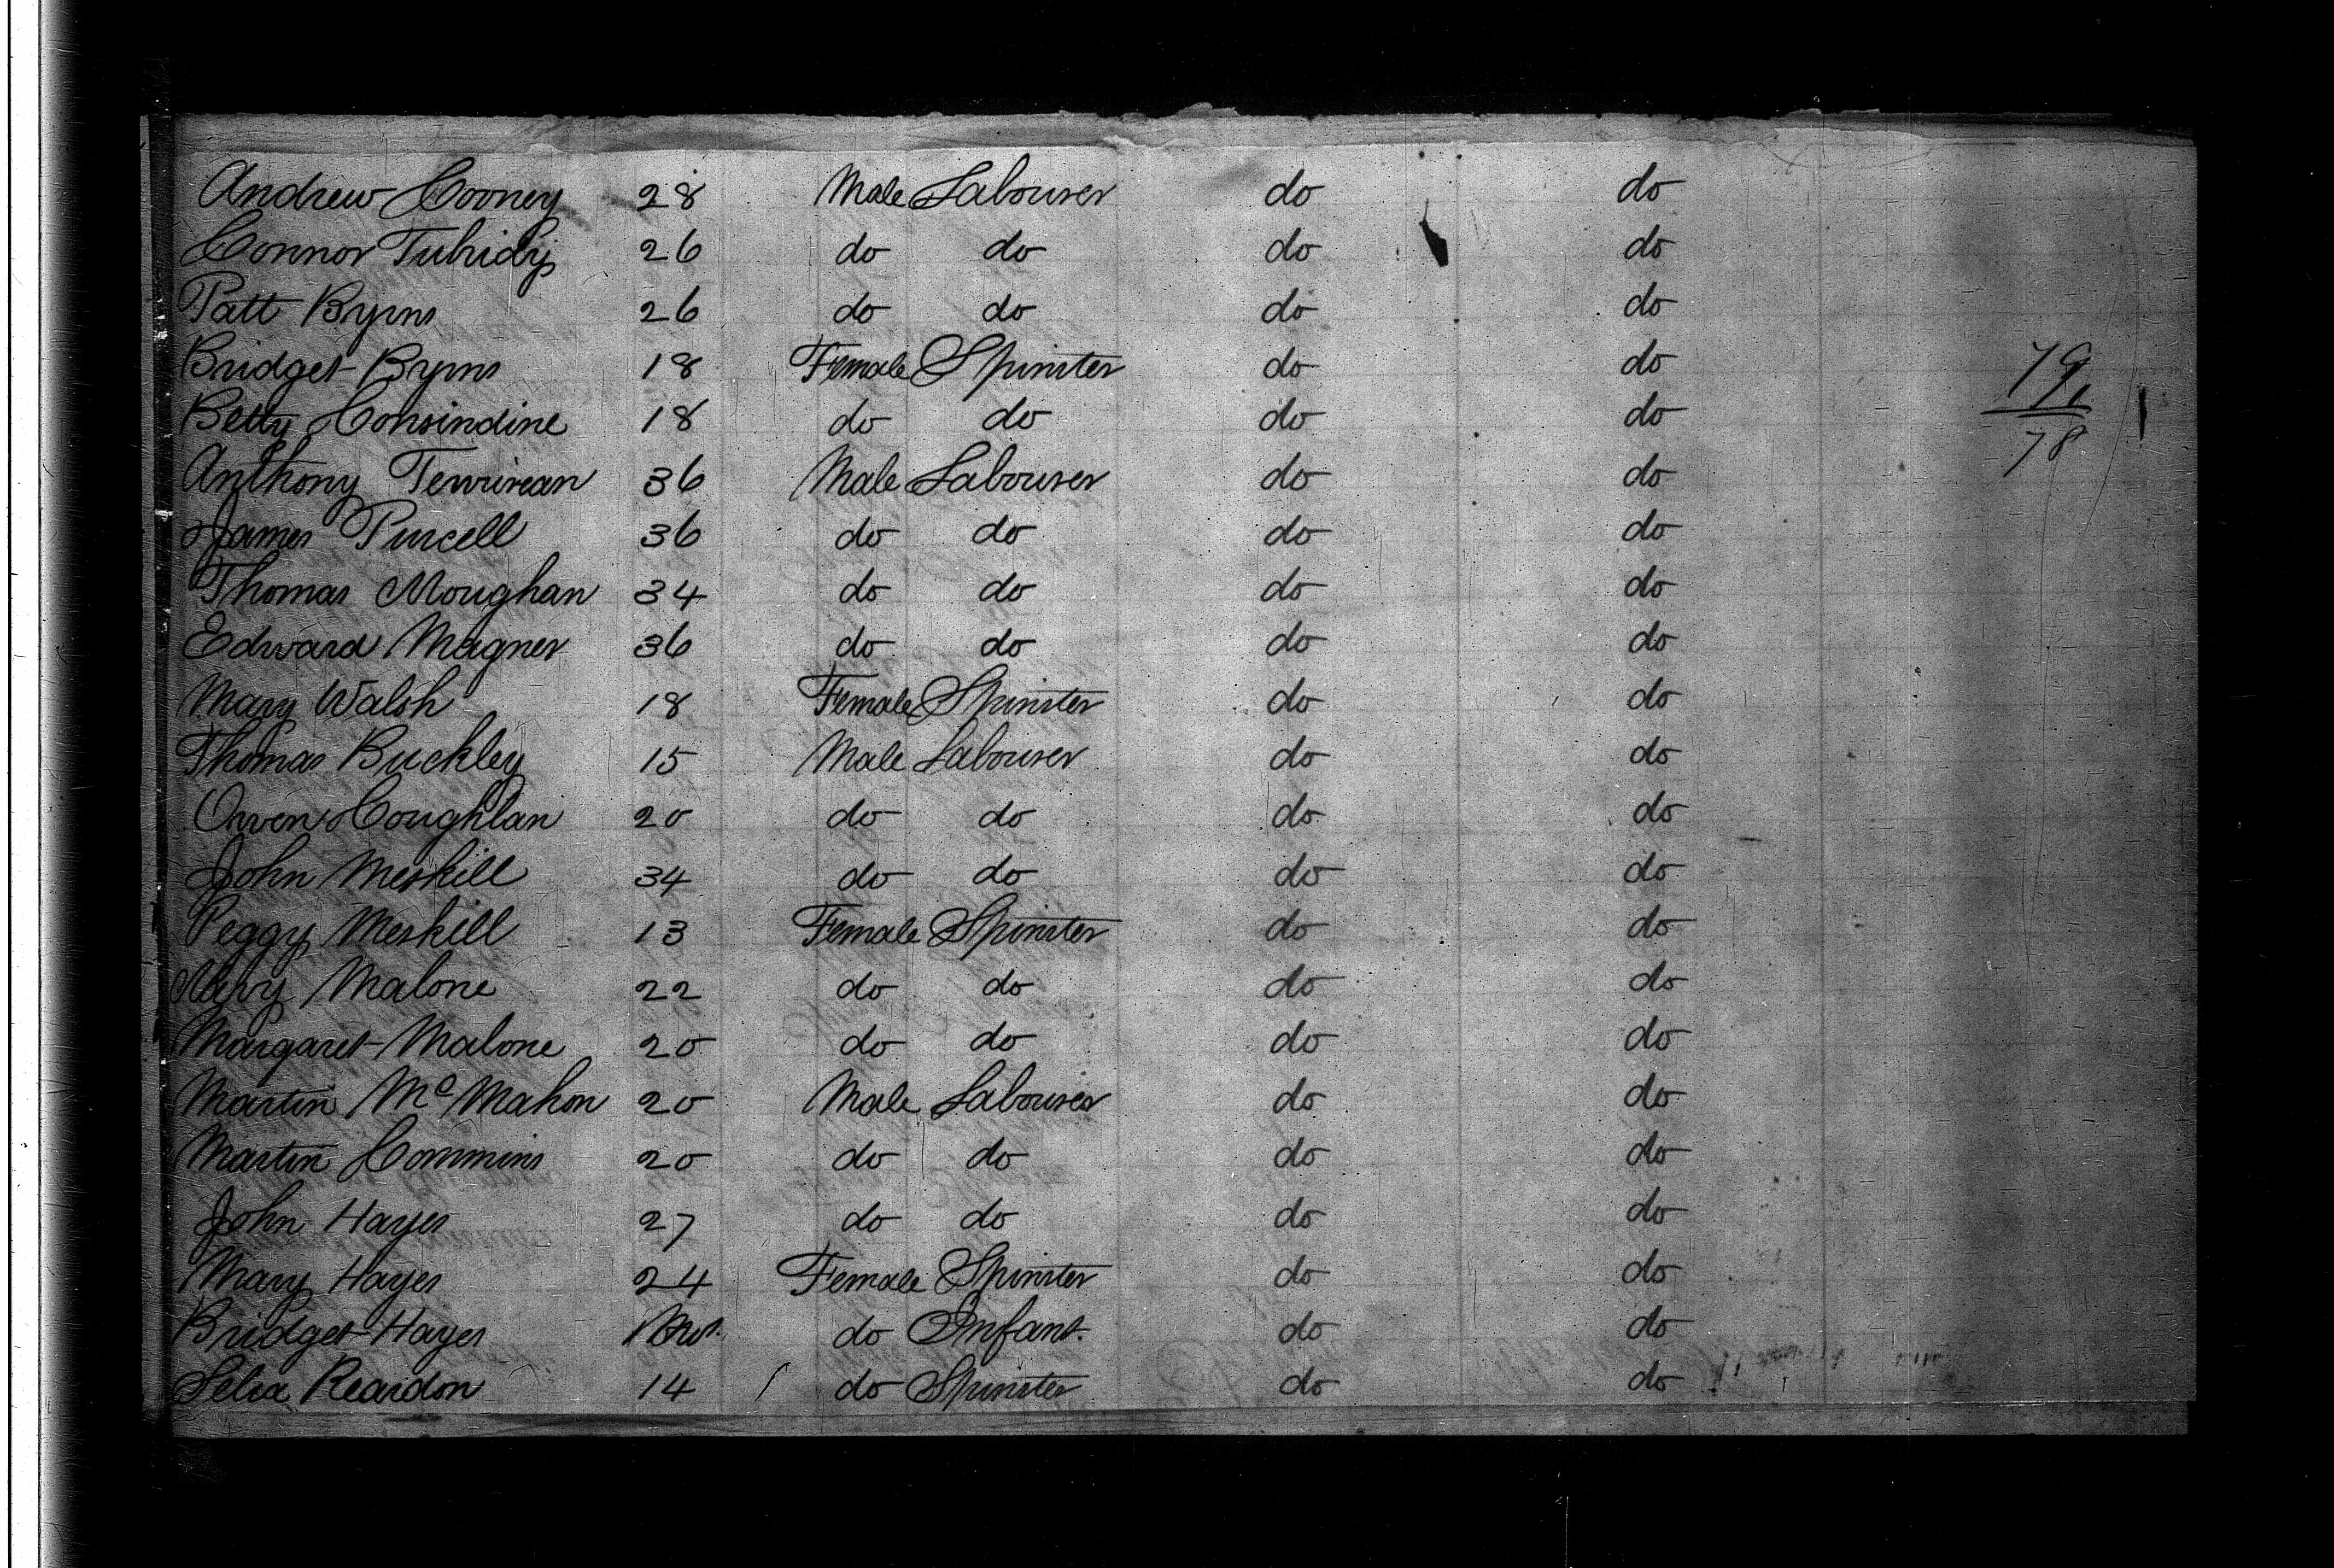 Andrew Cooney 28 Male Labourer do do
Connor Tubridy 26 do do do do
Patt Byrns 26 do do do do
Bridget Byrns 18 Female Spinster do do
79
Betty Considine 18 do do do do
78
Anthony 36 Male Labourer do do
James Purcell 36 do do do do
Thomas Moughan 34 do do do do
Edward Magner 36 do do do do
Mary Walsh 18 Female Spinster do do
Thomas Buckley 15 Male Labourer do do
Owen Coughlan 20 do do do do
John Meskill 34 do do do do
Peggy Meskill 13 Female Spinster do do
Mary Malone 22 do do do do
Margaret Malone 20 do do do do
Martin McMahon 20 Male Labourer do do
Martin Commins 20 do do do do
John Hayes 27 do do do do
Mary Hayes 24 Female Spinster do do
Bridget Hayes do Infant. do do
Reardon 14 do Spinster do do